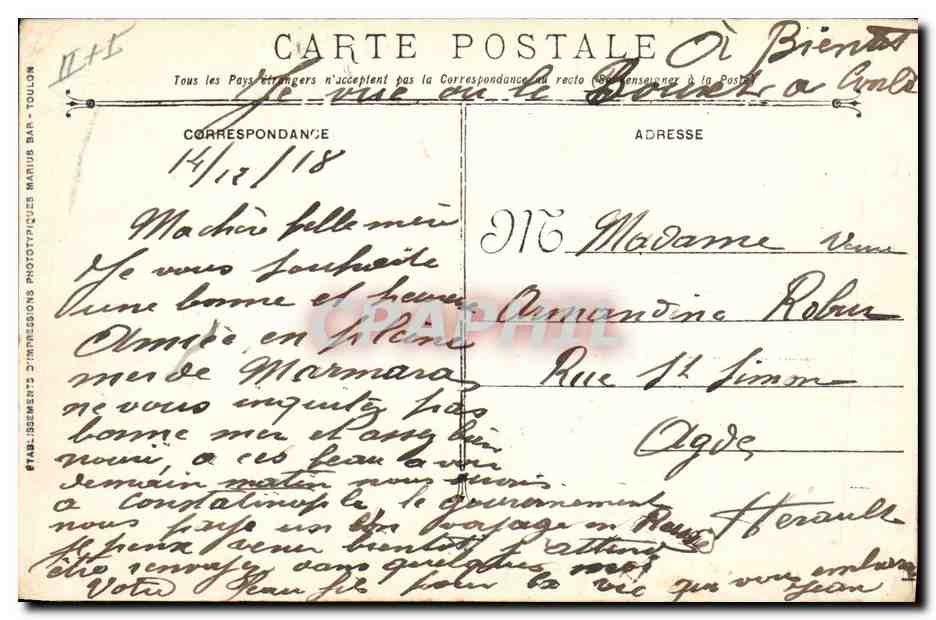 II + I
CARTE POSTALE
À Bientôt
Tous les Pays étrangers n'acceptent pas la Correspondance au recto (Se renseigner à la Poste)
Je vue ou le a
CORRESPONDANCE
ADRESSE
14/12/18
Ma chère belle mère
Je vous souhaite
une bonne et heureuse
Année en plaine
mer de Marmara
ne vous inquitez pas
bonne mer et assez bien
nouri, a ces beau a voir
demain matin nous
a Constatinople le gouvernement
nous paye un voyage en Russie
je peux venir bientôt j'attend
être renvoyé dans quelques moi
Votre beau fils pour la vie qui vous embrasse
Jean
M Madame Veuve
Armandine Robur
Rue St Simon
Agde
Hérault
ÉTABLISSEMENTS D'IMPRESSIONS PHOTOTYPIQUES MARIUS BAR - TOULON
CPAPHIL